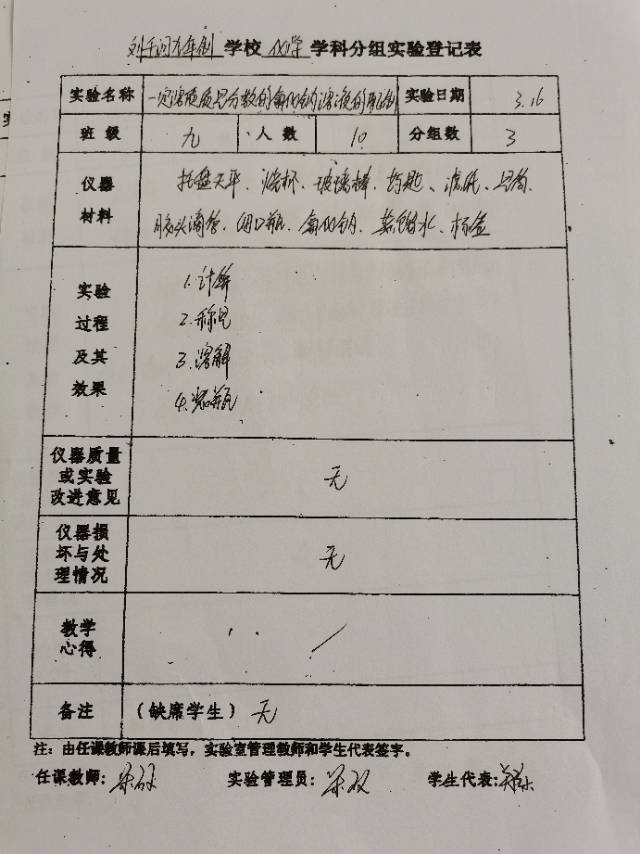 学校 化学 学科分组实验登记表
实验名称 一定溶质质量分数的氯化钠溶液的配制 实验日期 3.16
班级 九 人数 10 分组数 3
仪器材料 托盘天平、烧杯、玻璃棒、药匙、滤纸、量筒、
胶头滴管、细口瓶、氯化钠、蒸馏水、标签
实验过程及其效果
1.计算
2.称量
3.溶解
4.装瓶
仪器质量或实验改进意见 无
仪器损坏与处理情况 无
教学心得 /
备注 (缺席学生) 无
注:由任课教师课后填写,实验室管理教师和学生代表签字。
任课教师: 实验管理员: 学生代表: